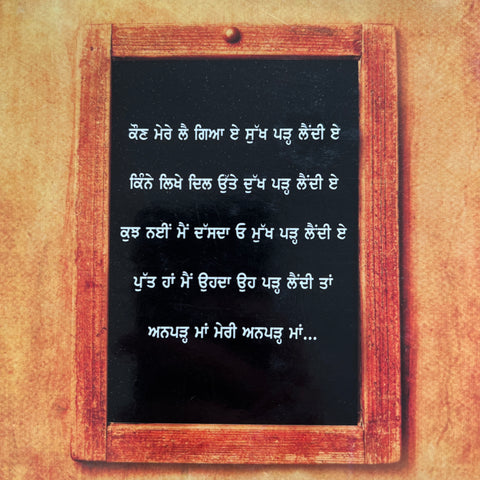 ਕੌਣ ਮੇਰੇ ਲੈ ਗਿਆ ਏ ਸੁੱਖ ਪੜ੍ਹ ਲੈਂਦੀ ਏ
ਕਿੰਨੇ ਲਿਖੇ ਦਿਲ ਉੱਤੇ ਦੁੱਖ ਪੜ੍ਹ ਲੈਂਦੀ ਏ
ਕੁਝ ਨਈਂ ਮੈਂ ਦੱਸਦਾ ਓ ਮੁੱਖ ਪੜ੍ਹ ਲੈਂਦੀ ਏ
ਪੁੱਤ ਹਾਂ ਮੈਂ ਉਹਦਾ ਉਹ ਪੜ੍ਹ ਲੈਂਦੀ ਤਾਂ
ਅਨਪੜ੍ਹ ਮਾਂ ਮੇਰੀ ਅਨਪੜ੍ਹ ਮਾਂ...